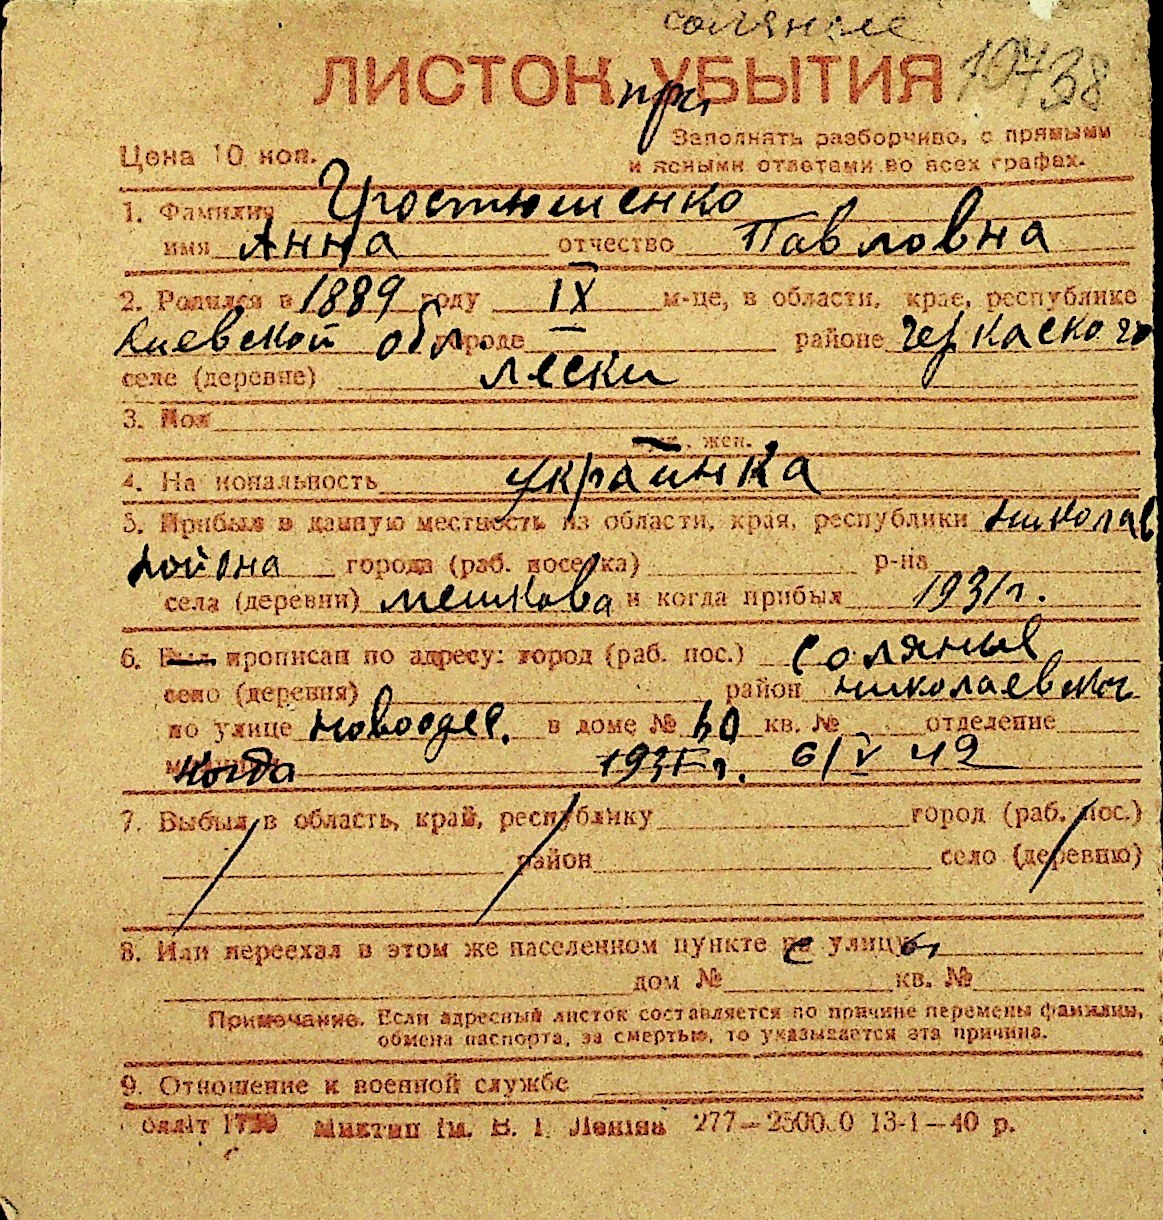 соляные
ЛИСТОК при УБЫТИЯ 10738
Заполнять разборчиво, с прямыми
Цена 10 коп. и ясными ответами во всех графах.
1. Фамилия Гростюшенко
имя Анна отчество Павловна
2. Родился в 1889 году IX м-це, в области, крае, республике
Киевской обл. городе районе Черкаского
селе (деревне) Лески
3. Пол
жен.
4. Национальность украинка
5. Прибыл в данную местность из области, края, республики Николаев
района города (раб. поселка) р-на
села (деревни) Мешкова и когда прибыл 1931 г.
6. Был прописан по адресу: город (раб. пос.) Соляные
село (деревня) район Николаевског
по улице Новоодес. в доме № 60 кв. № отделение
когда 193 г. 6/V 42
7. Выбыл в область, край, республику город (раб. пос.)
район село (деревню)
8. Или переехал в этом же населенном пункте с улицы
дом № кв. №
Примечание. Если адресный листок составляется по причине перемены фамилии,
обмена паспорта, за смертью, то указывается эта причина.
9. Отношение к военной службе
Облліт Миктип ім. В. І. Леніна 277—2500.0 13-1—40 р.